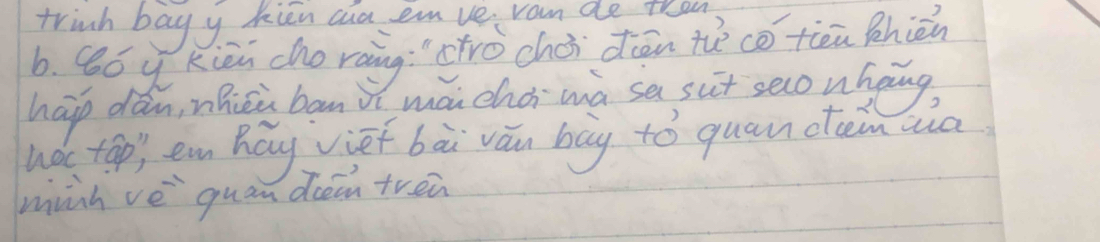 trình bày ý kiến của em về vấn đề trên
b. Có ý kiến cho rằng: "trò chơi điện tử có tiêu khiển
hấp dẫn, nhiều bạn vì mải chơi mà sa sút sao nhãng
học tập", em hãy viết bài văn bày tỏ quan điểm của
mình về quan điểm trên